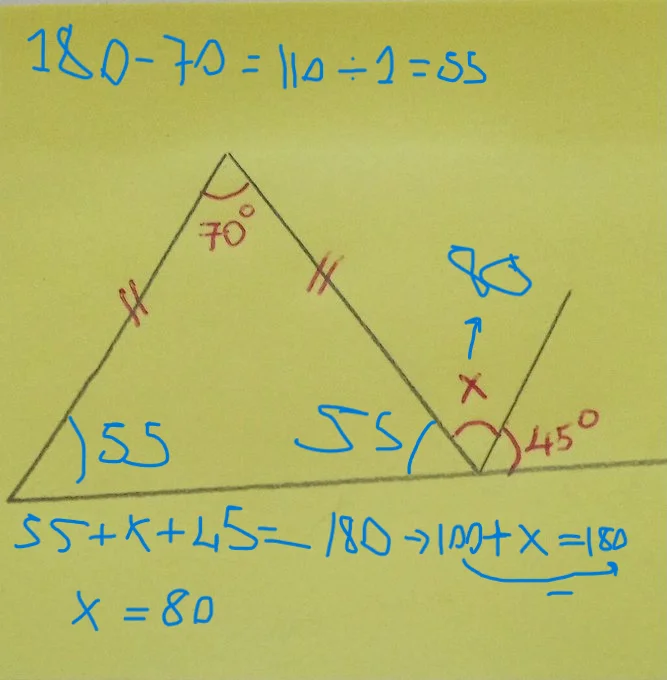 180-70=110÷2=55
70°
80
x
55
55
45°
55+x+45=180→100+x=180
-
x=80